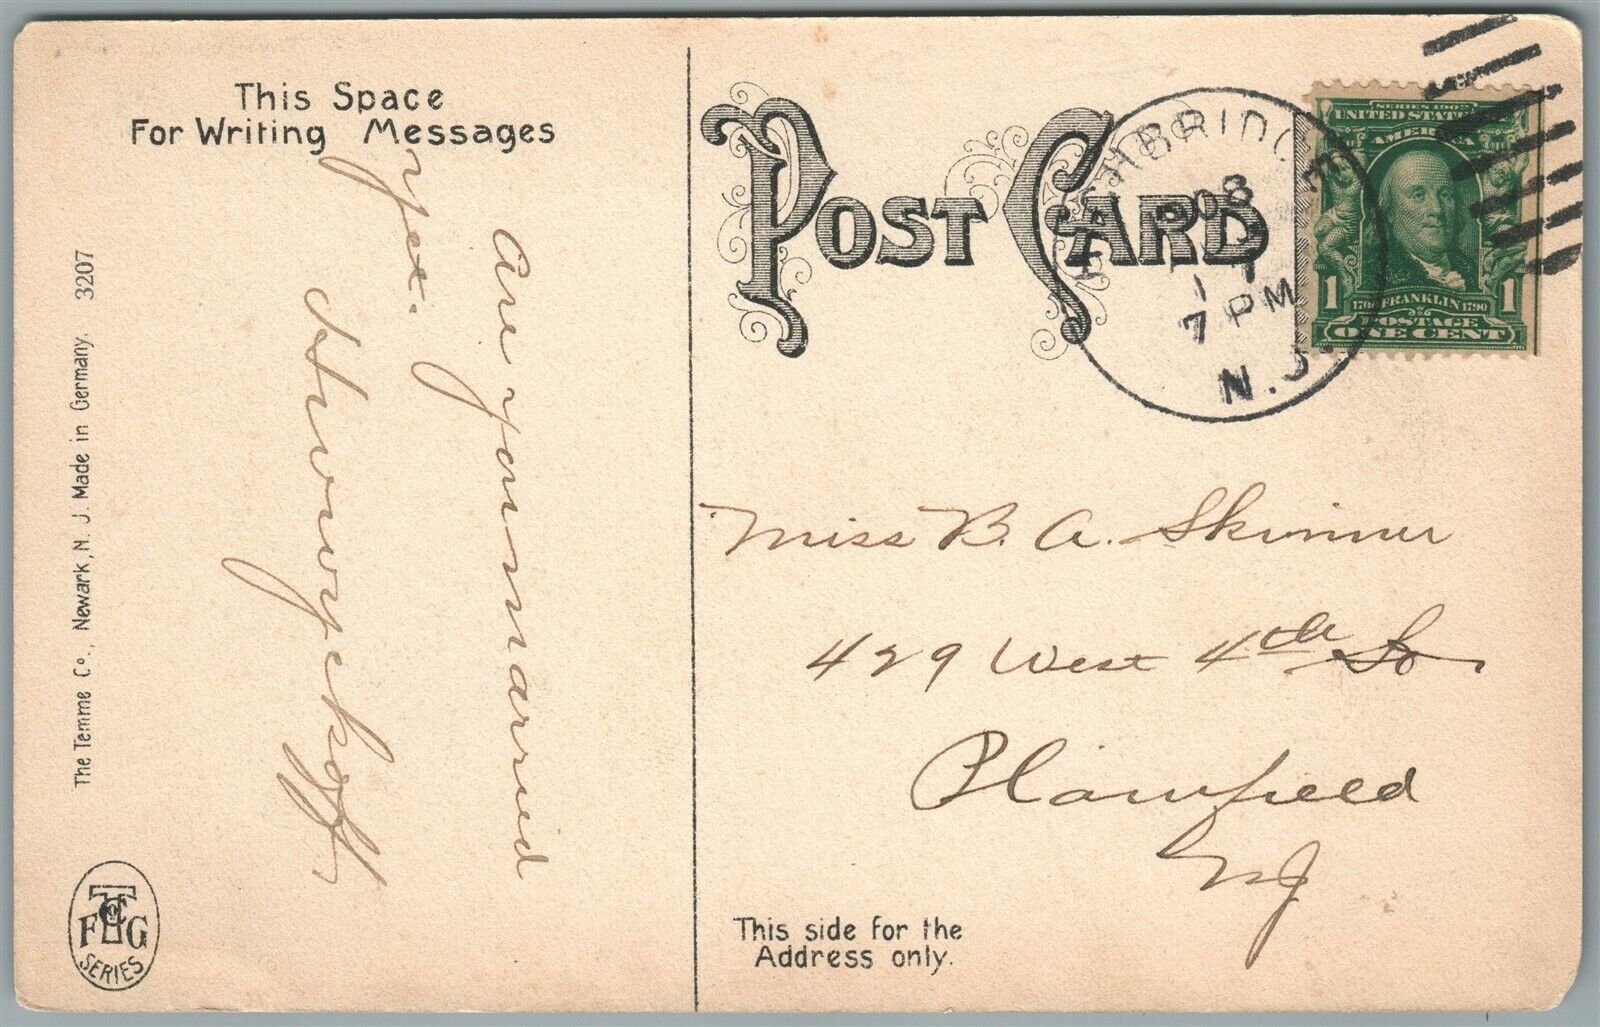 This Space
For Writing Messages
Are you married
yet.
The Temme Co., Newark, N. J. Made in Germany. 3207
SERIES
POST CARD
HIGHBRIDGE
1908
7 PM
N.J.
SERIES 1902
UNITED STATES OF
AMERICA
1 1
FRANKLIN 1790
POSTAGE
ONE CENT
Miss B. A. Skinner
429 West 4th St
Plainfield
NJ
This side for the
Address only.